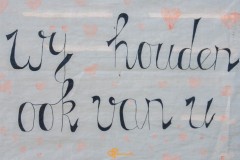 wy houden
ook van u